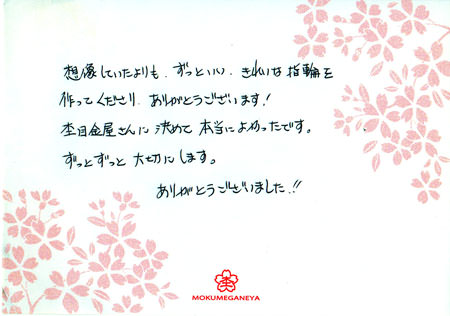 想像していたよりも、ずっといい、きれいな指輪を
作ってくださり、ありがとうございます!
杢目金屋さんに決めて本当によかったです。
ずっとずっと大切にします。
ありがとうございました!!
杢
MOKUMEGANEYA